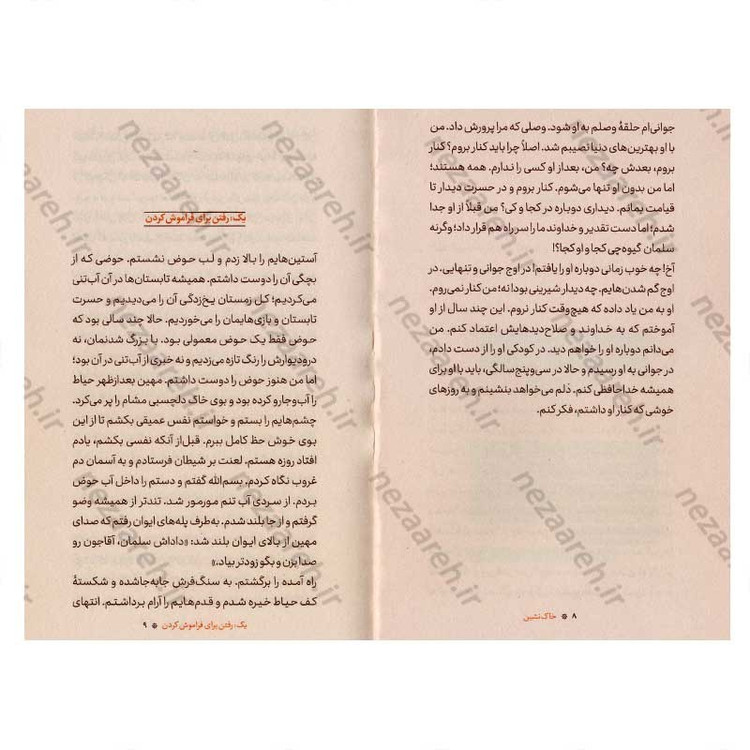 جوانی‌ام حلقهٔ وصلم به او شود. وصلی که مرا پرورش داد. من
با او بهترین‌های دنیا نصیبم شد. اصلاً چرا باید کنار بروم؟ کنار
بروم، بعدش چه؟ من، بعد از او کسی را ندارم. همه هستند؛
اما من بدون او تنها می‌شوم. کنار بروم و در حسرت دیدار تا
قیامت بمانم. دیداری دوباره در کجا و کی؟ من قبلاً از او جدا
شدم؛ اما دست تقدیر و خداوند ما را سر راه هم قرار داد؛ وگرنه
سلمان گیوه‌چی کجا و او کجا؟!
آخ! چه خوب زمانی دوباره او را یافتم! در اوج جوانی و تنهایی. در
اوج گم شدن‌هایم. چه دیدار شیرینی بود! نه؛ من کنار نمی‌روم.
او به من یاد داده که هیچ‌وقت کنار نروم. این چند سال از او
آموختم که به خداوند و صلاح‌دیدهایش اعتماد کنم. من
می‌دانم دوباره او را خواهم دید. در کودکی او را از دست دادم،
در جوانی به او رسیدم و حالا در سی‌وپنج‌سالگی، باید با او برای
همیشه خداحافظی کنم. دلم می‌خواهد بنشینم و به روزهای
خوشی که کنار او داشتم، فکر کنم.
۸ ❋ خاک‌نشین
یک: رفتن برای فراموش کردن
آستین‌هایم را بالا زدم و لب حوض نشستم. حوضی که از
بچگی آن را دوست داشتم. همیشه تابستان‌ها در آن آب‌تنی
می‌کردیم؛ کل زمستان یخ‌زدگی آن را می‌دیدیم و حسرت
تابستان و بازی‌هایمان را می‌خوردیم. حالا چند سالی بود که
حوض فقط یک حوض معمولی بود. با بزرگ شدنمان، نه
درودیوارش را رنگ تازه می‌زدیم و نه خبری از آب‌تنی در آن بود؛
اما من هنوز حوض را دوست داشتم. مهین بعدازظهر حیاط
را آب‌وجارو کرده بود و بوی خاک دلچسبی مشام را پر می‌کرد.
چشم‌هایم را بستم و خواستم نفس عمیقی بکشم تا از این
بوی خوش حظ کامل ببرم. قبل از آنکه نفسی بکشم، یادم
افتاد روزه هستم. لعنت بر شیطان فرستادم و به آسمان دم
غروب نگاه کردم. بسم‌الله گفتم و دستم را داخل آب حوض
بردم. از سردی آب تنم مورمور شد. تندتر از همیشه وضو
گرفتم و از جا بلند شدم. به‌طرف پله‌های ایوان رفتم که صدای
مهین از بالای ایوان بلند شد: «داداش سلمان، آقاجون رو
صدا بزن و بگو زودتر بیاد.»
راه آمده را برگشتم. به سنگ‌فرش جابه‌جاشده و شکستهٔ
کف حیاط خیره شدم و قدم‌هایم را آرام برداشتم. انتهای
یک: رفتن برای فراموش کردن ❋ ۹
nezaareh.ir
nezaareh.ir
nezaareh.ir
nezaareh.ir
nezaareh.ir
nezaareh.ir
nezaareh.ir
nezaareh.ir